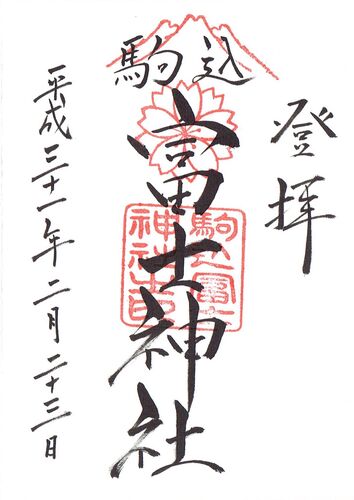 登拝
駒込
富士神社
平成三十一年二月二十三日
駒込富士
神社之印